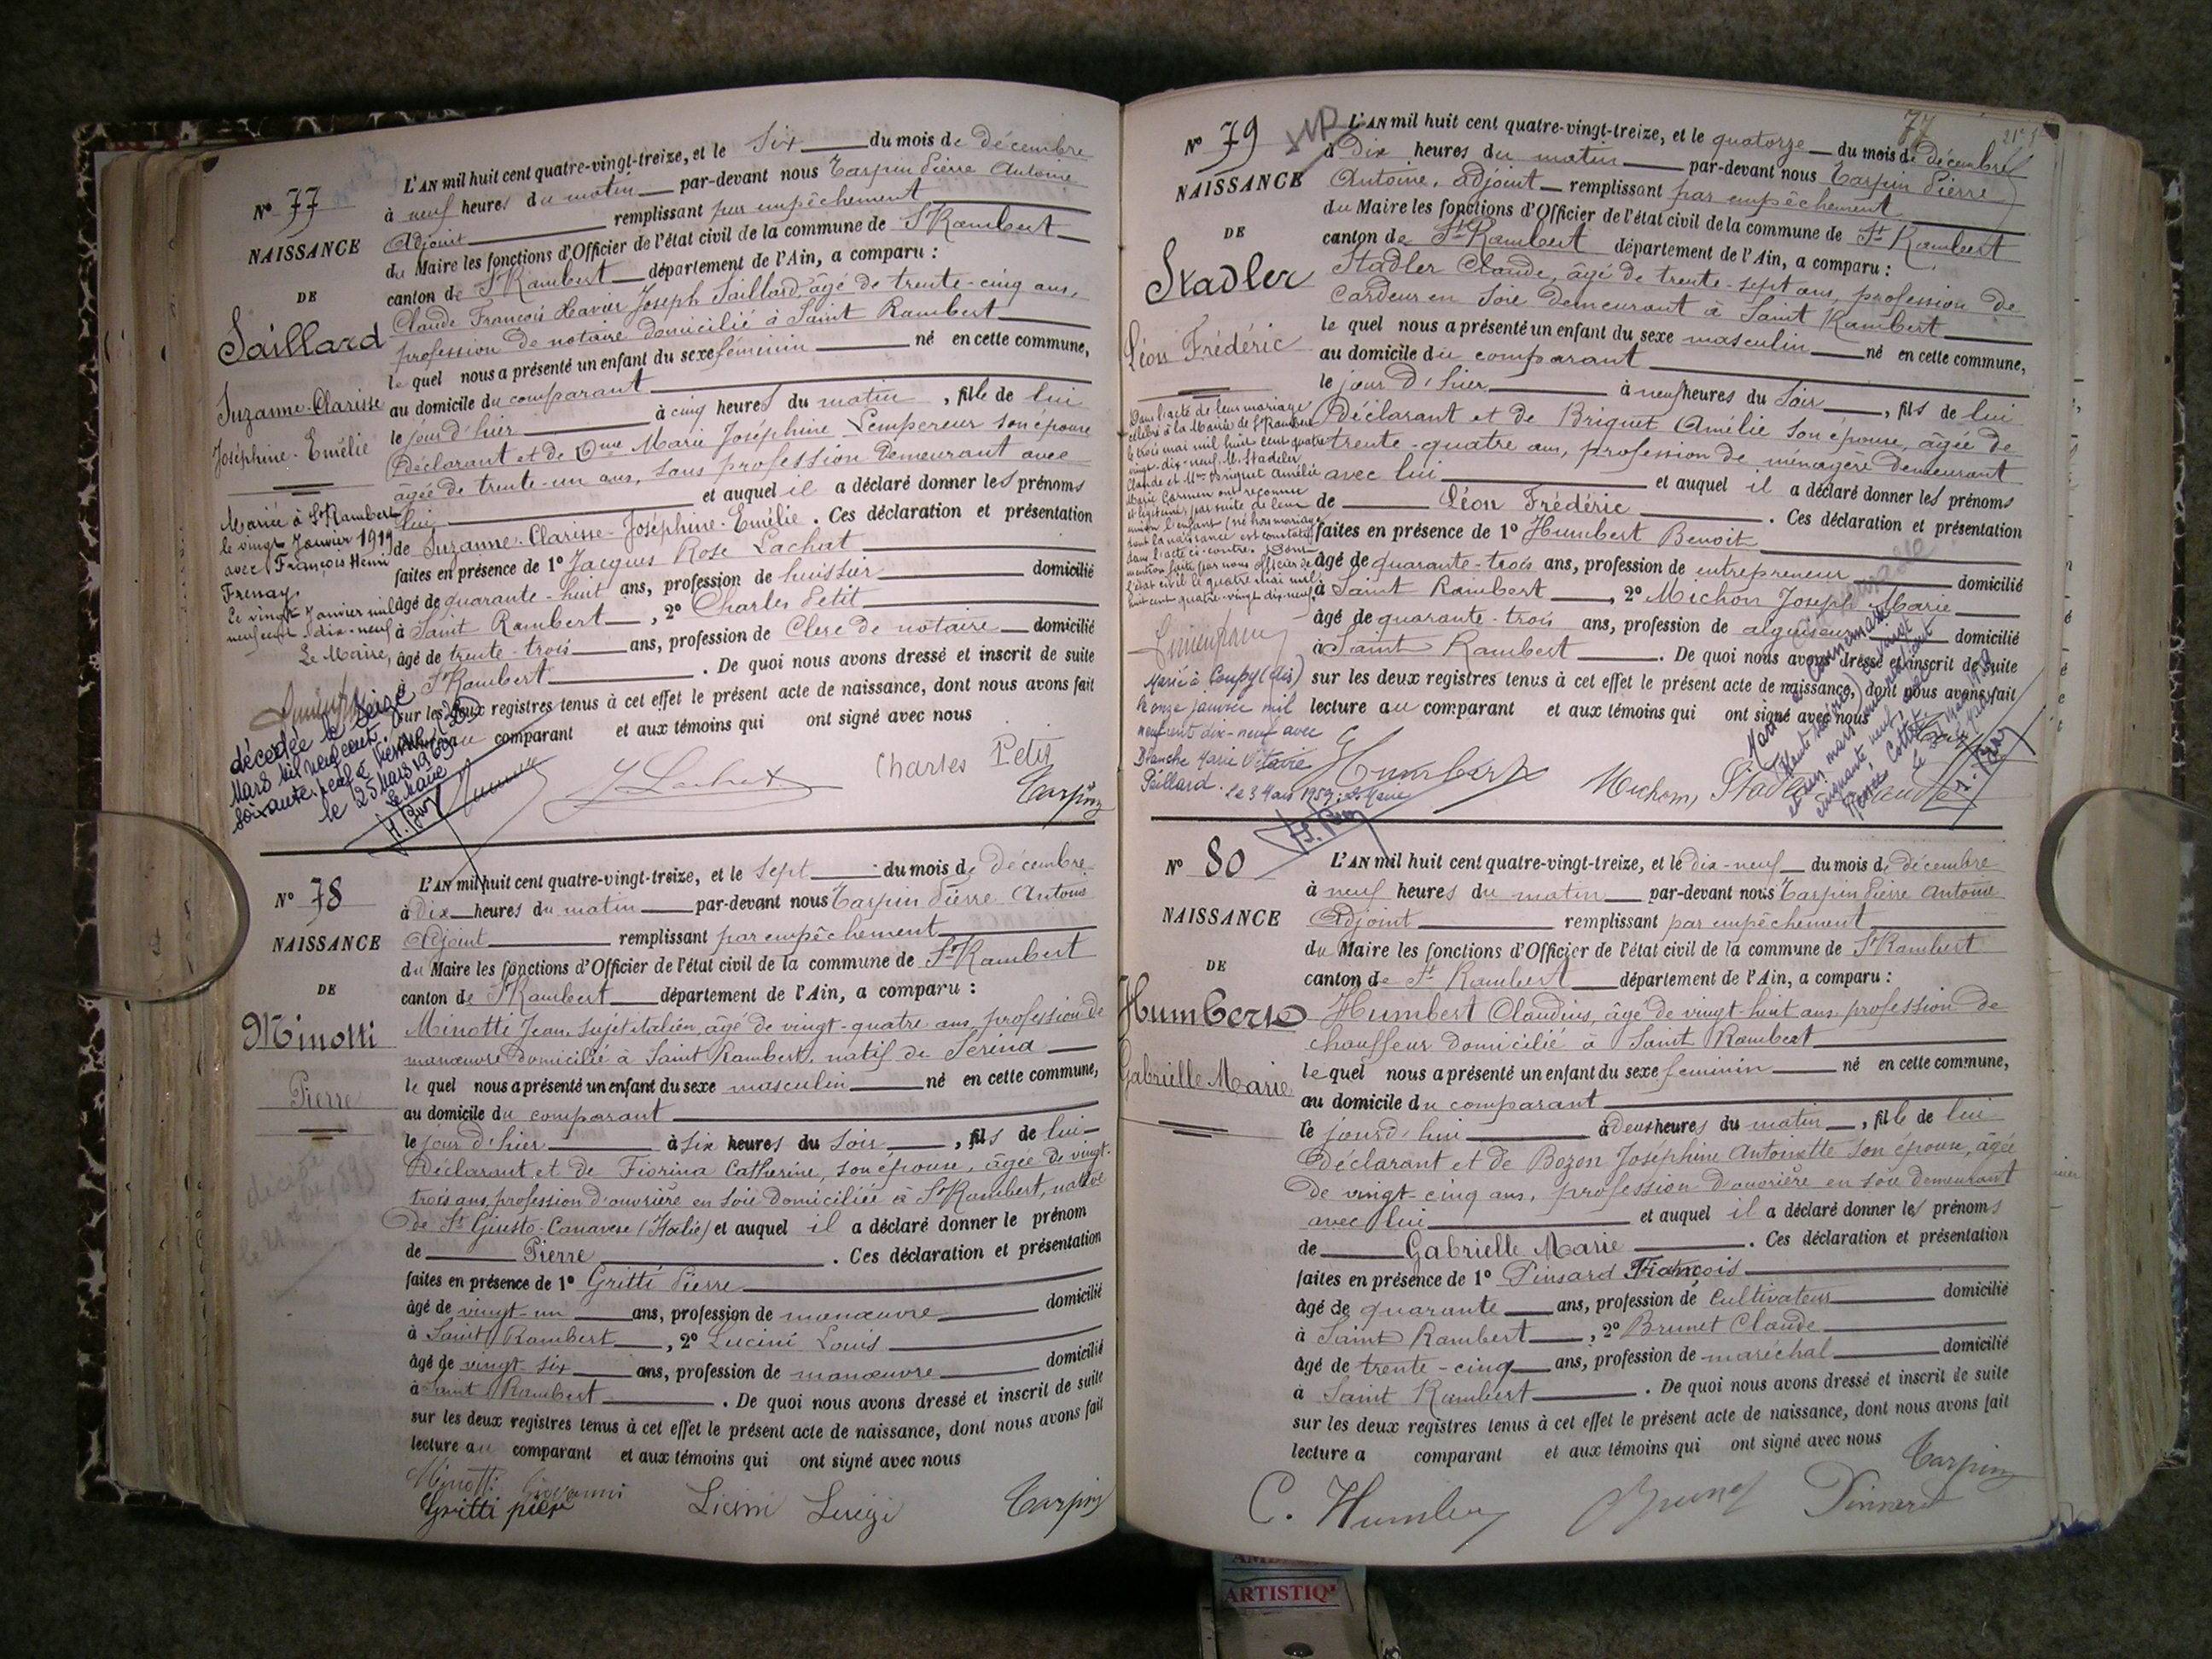 N° 77
NAISSANCE
DE
Saillard
Suzanne-Clarisse
Joséphine-Emélie
Mariée à St Rambert
le vingt Janvier 1919
avec François Henri
Frenay.
Le vingt Janvier mil
neuf cent dix-neuf
Le Maire,
décédée le seize
Mars mil neuf cent
soixante neuf à
le 25 Mars 1969
Le Maire
L'AN mil huit cent quatre-vingt-treize, et le six du mois de décembre
à neuf heures du matin par-devant nous Tarpin Pierre Antoine
Adjoint remplissant par empêchement
du Maire les fonctions d'Officier de l'état civil de la commune de St Rambert
canton de St Rambert département de l'Ain, a comparu :
Claude François Xavier Joseph Saillard, âgé de trente-cinq ans,
profession de notaire domicilié à Saint Rambert
le quel nous a présenté un enfant du sexe féminin né en cette commune,
au domicile du comparant
le jour d'hier à cinq heures du matin, fille de lui
déclarant et de Dme Marie Joséphine Lempereur son épouse
âgée de trente-un ans, sans profession demeurant avec
lui et auquel il a déclaré donner les prénoms
de Suzanne-Clarisse-Joséphine-Emélie. Ces déclaration et présentation
faites en présence de 1° Jacques Rose Lachat
âgé de quarante-huit ans, profession de huissier domicilié
à Saint Rambert, 2° Charles Petit
âgé de trente-trois ans, profession de Clerc de notaire domicilié
à St Rambert. De quoi nous avons dressé et inscrit de suite
sur les deux registres tenus à cet effet le présent acte de naissance, dont nous avons fait
lecture au comparant et aux témoins qui ont signé avec nous
J Lachat Charles Petit
Tarpin
N° 78
NAISSANCE
DE
Minotti
Pierre
L'AN mil huit cent quatre-vingt-treize, et le sept du mois de décembre
à dix heures du matin par-devant nous Tarpin Pierre Antoine
Adjoint remplissant par empêchement
du Maire les fonctions d'Officier de l'état civil de la commune de St Rambert
canton de St Rambert département de l'Ain, a comparu :
Minotti Jean, sujet italien, âgé de vingt-quatre ans profession de
manœuvre domicilié à Saint Rambert, natif de Serina
le quel nous a présenté un enfant du sexe masculin né en cette commune,
au domicile du comparant
le jour d'hier à six heures du soir, fils de lui
déclarant et de Fiorina Catherine, son épouse, âgée de vingt-
trois ans, profession d'ouvrière en soie domiciliée à St Rambert, native
de St Giusto-Canavese (Italie) et auquel il a déclaré donner le prénom
de Pierre. Ces déclaration et présentation
faites en présence de 1° Gritti Pierre
âgé de vingt-un ans, profession de manœuvre domicilié
à Saint Rambert, 2° Lucini Louis
âgé de vingt-six ans, profession de manœuvre domicilié
à Saint Rambert. De quoi nous avons dressé et inscrit de suite
sur les deux registres tenus à cet effet le présent acte de naissance, dont nous avons fait
lecture au comparant et aux témoins qui ont signé avec nous
Minotti Giovanni
Gritti pier Luigi Tarpin
77
N° 79
NAISSANCE
DE
Stadler
Léon Frédéric
Dans l'acte de leur mariage
célébré à la Mairie de St Rambert
le trois mai mil huit cent quatre
vingt-dix-neuf, M. Stadler
Claude et Mme Briguet Amélie
Marie Carmen ont reconnu
et légitimé, par suite de leur
union l'enfant (né hors mariage)
dont la naissance est constatée
dans l'acte ci-contre. Dont
mention faite par nous officier de
l'état civil le quatre mai mil
huit cent quatre-vingt dix-neuf
Marié à Coupy (Ain)
le onze janvier mil
neuf cent dix-neuf avec
Blanche Marie
Paillard. Le 3 Mars 1959: Le Maire
L'AN mil huit cent quatre-vingt-treize, et le quatorze du mois de décembre
à dix heures du matin par-devant nous Tarpin Pierre
Antoine, adjoint remplissant par empêchement
du Maire les fonctions d'Officier de l'état civil de la commune de St Rambert
canton de St Rambert département de l'Ain, a comparu :
Stadler Claude, âgé de trente-sept ans, profession de
Cardeur en soie demeurant à Saint Rambert
le quel nous a présenté un enfant du sexe masculin né en cette commune,
au domicile du comparant
le jour d'hier à neuf heures du soir, fils de lui
déclarant et de Briguet Amélie son épouse, âgée de
trente-quatre ans, profession de ménagère demeurant
avec lui et auquel il a déclaré donner les prénoms
de Léon Frédéric. Ces déclaration et présentation
faites en présence de 1° Humbert Benoit
âgé de quarante-trois ans, profession de entrepreneur domicilié
à Saint Rambert, 2° Michon Joseph Marie
âgé de quarante-trois ans, profession de aiguiseur domicilié
à Saint Rambert. De quoi nous avons dressé et inscrit de suite
sur les deux registres tenus à cet effet le présent acte de naissance, dont nous avons fait
lecture au comparant et aux témoins qui ont signé avec nous
Humbert Michon, Stadler Claude
N° 80
NAISSANCE
DE
Humbert
Gabrielle Marie
L'AN mil huit cent quatre-vingt-treize, et le dix-neuf du mois de décembre
à neuf heures du matin par-devant nous Tarpin Pierre Antoine
Adjoint remplissant par empêchement
du Maire les fonctions d'Officier de l'état civil de la commune de St Rambert
canton de St Rambert département de l'Ain, a comparu :
Humbert Claudius, âgé de vingt-huit ans profession de
chauffeur domicilié à Saint Rambert
le quel nous a présenté un enfant du sexe feminin né en cette commune,
au domicile du comparant
le jourd'hui à deux heures du matin, fille de lui
déclarant et de Bozon Joséphine Antoinette son épouse, âgée
de vingt-cinq ans, profession d'ouvrière en soie demeurant
avec lui et auquel il a déclaré donner les prénoms
de Gabrielle Marie. Ces déclaration et présentation
faites en présence de 1° Pinsard François
âgé de quarante ans, profession de cultivateur domicilié
à Saint Rambert, 2° Brunet Claude
âgé de trente-cinq ans, profession de maréchal domicilié
à Saint Rambert. De quoi nous avons dressé et inscrit de suite
sur les deux registres tenus à cet effet le présent acte de naissance, dont nous avons fait
lecture a comparant et aux témoins qui ont signé avec nous
Tarpin
C. Humbert Brunet Pinsard
ARTISTIQ